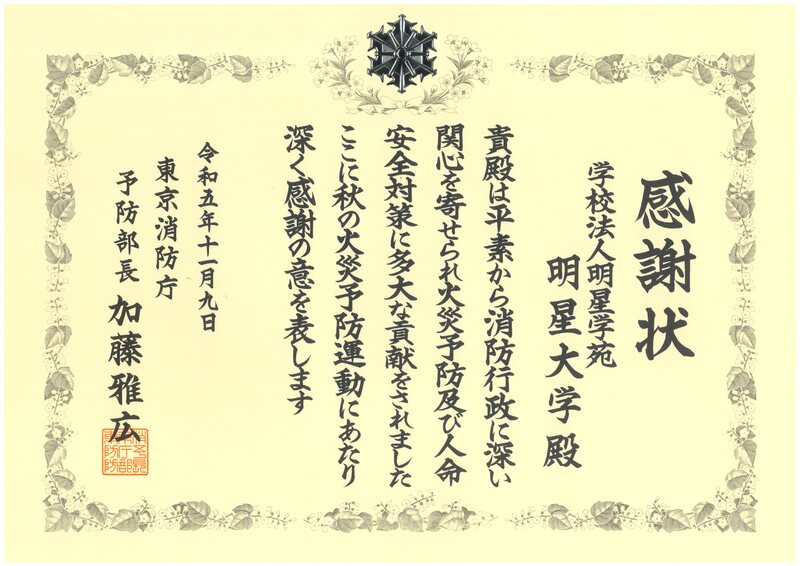 感謝状
学校法人明星学苑
明星大学殿
貴殿は平素から消防行政に深い
関心を寄せられ火災予防及び人命
安全対策に多大な貢献をされました
ここに秋の火災予防運動にあたり
深く感謝の意を表します
令和五年十一月九日
東京消防庁
予防部長 加藤雅広